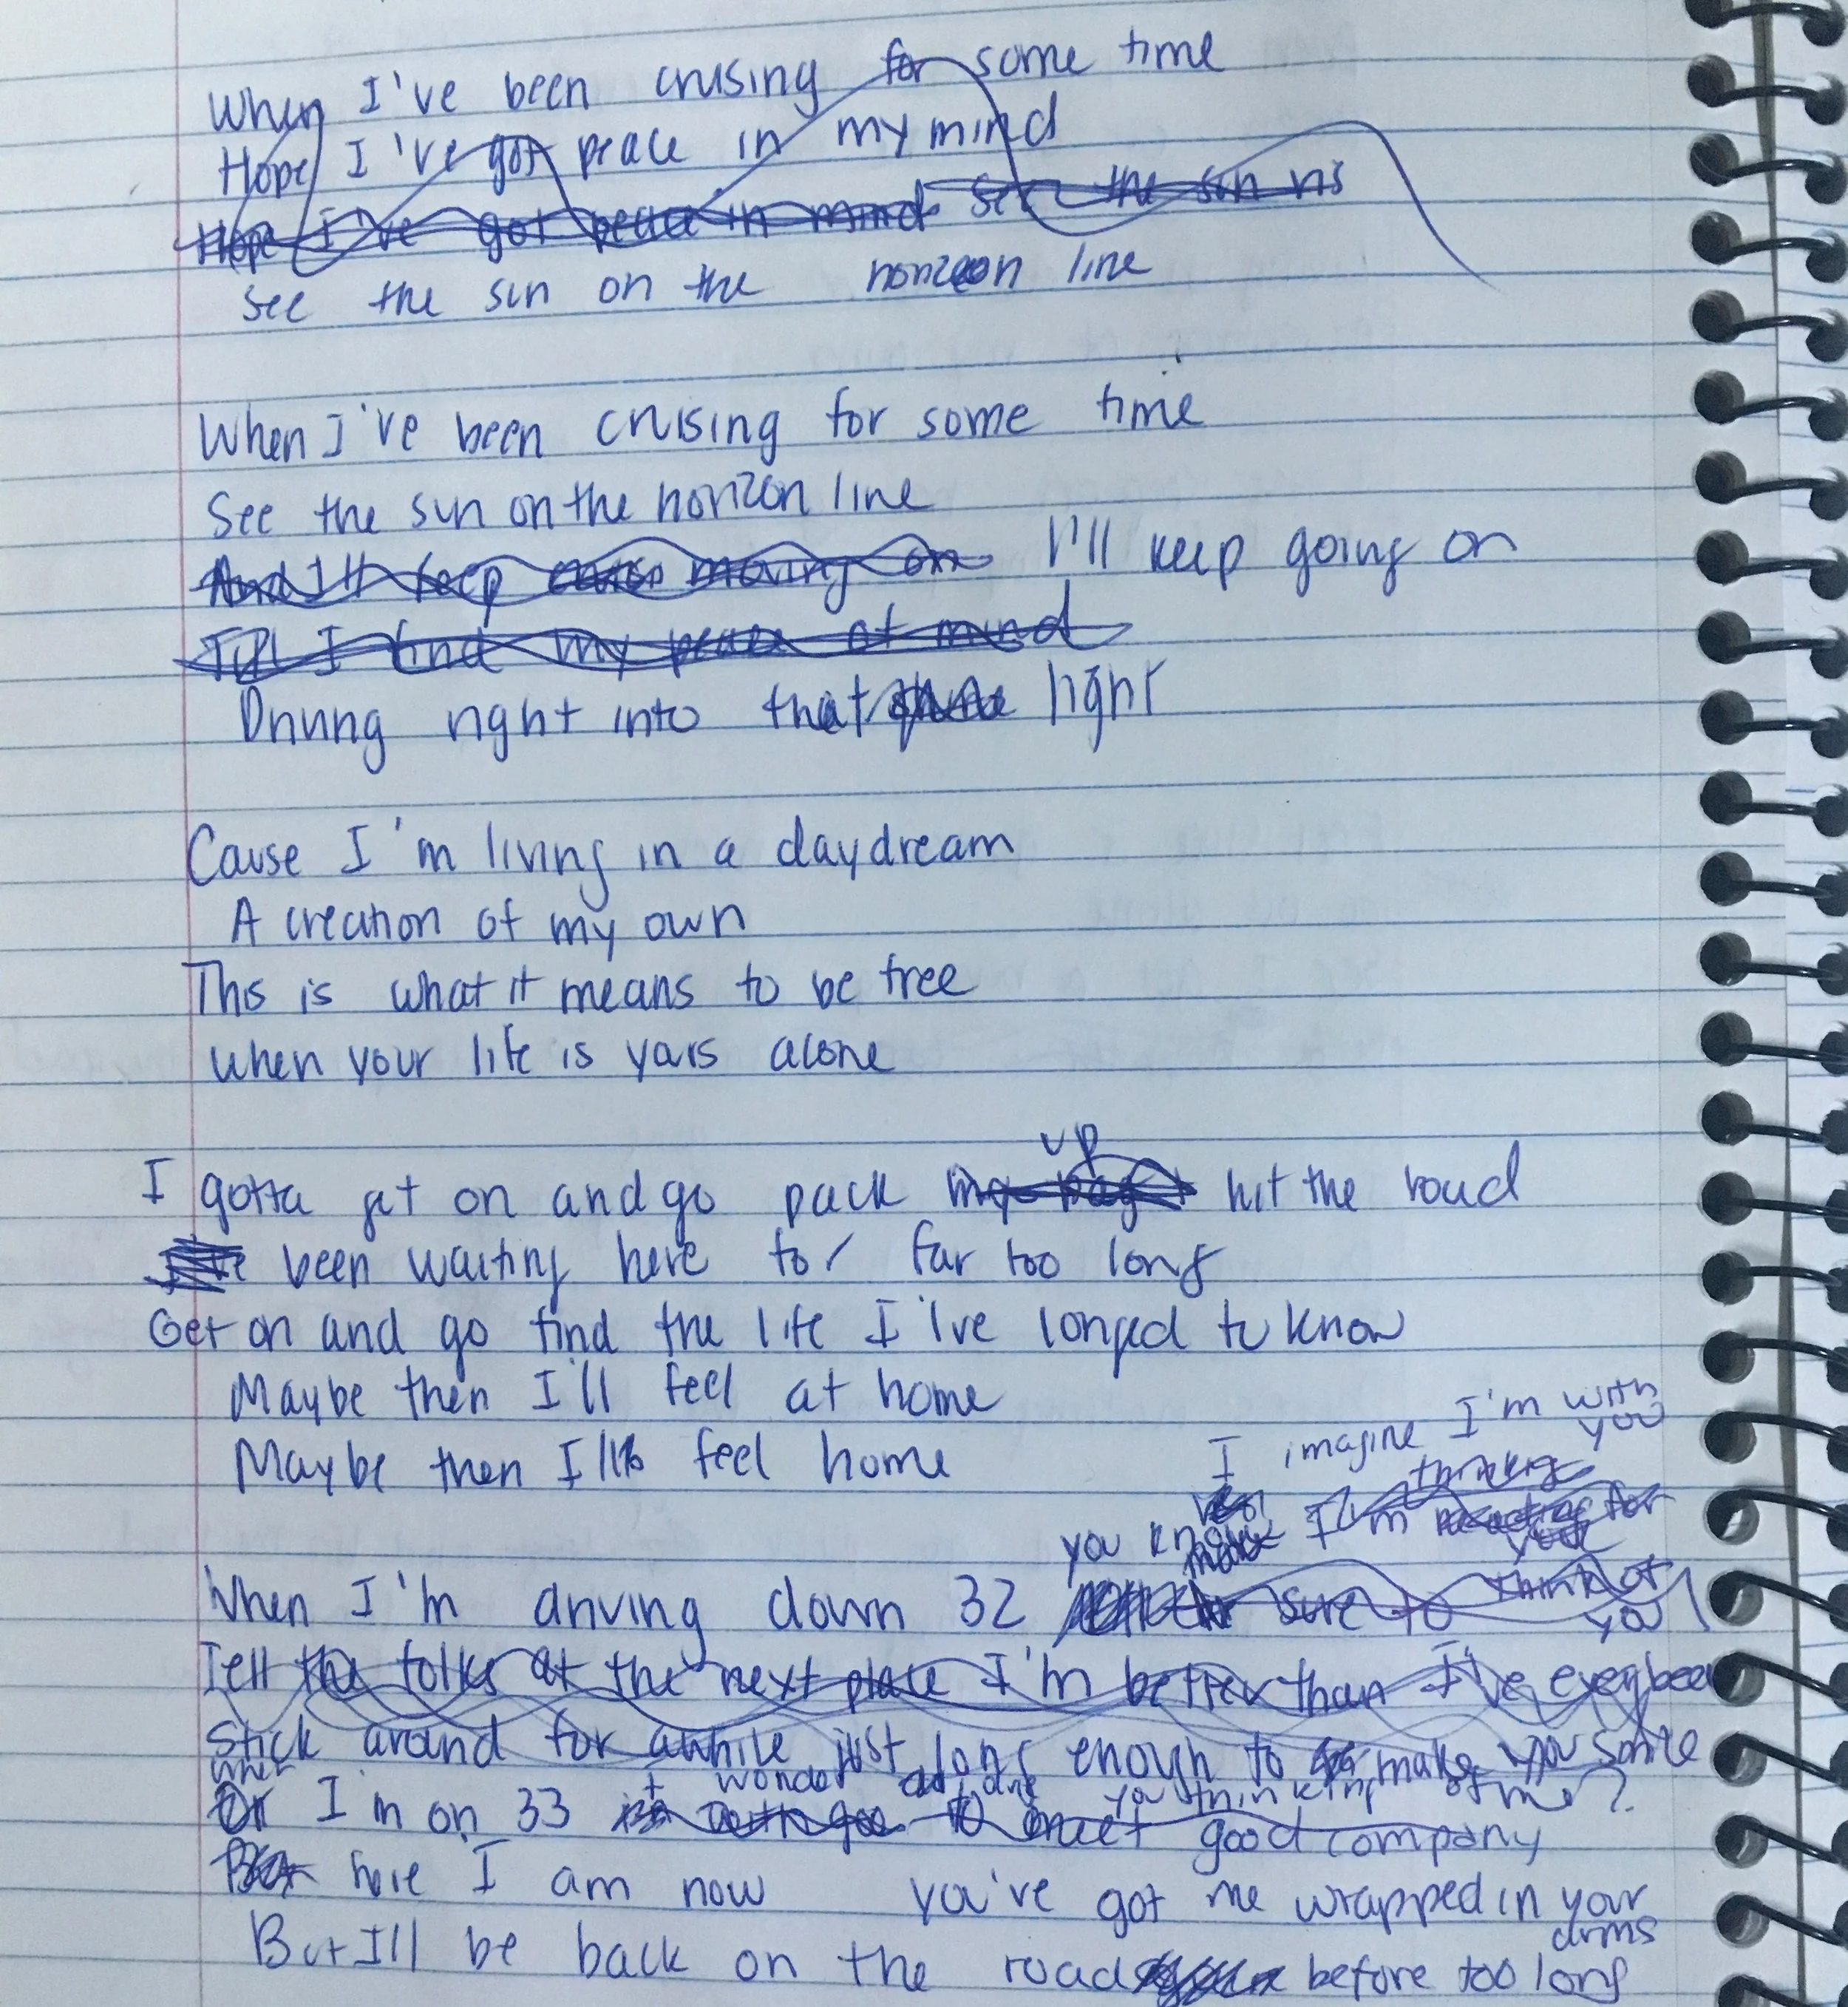 When I've been crusing for some time
Hope I've got peace in my mind
Hope I've got peace in mind see the sun ris
See the sun on the horizon line
When I've been crusing for some time
See the sun on the horizon line
And I'll keep moving on I'll keep going on
Till I find my peace of mind
Driving right into that light
Cause I'm living in a daydream
A creation of my own
This is what it means to be free
when your life is yours alone
up
I gotta get on and go pack my bags hit the road
I've been waiting here for far too long
Get on and go find the life I've longed to know
Maybe then I'll feel at home
Maybe then I'll feel home
I imagine I'm with you
thinking
you know I'm for you
When I'm driving down 32 sure to think of you
Tell the folks at the next place I'm better than I've ever been
Stick around for awhile just long enough to make you smile
when I wonder are you thinking of me?
Or I'm on 33 to meet good company
But here I am now you've got me wrapped in your arms
But I'll be back on the road before too long